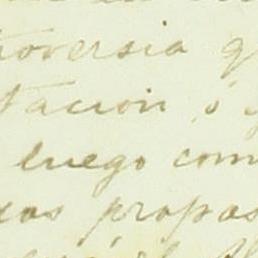 troversia q
tacion, o y
luego com
xos propos